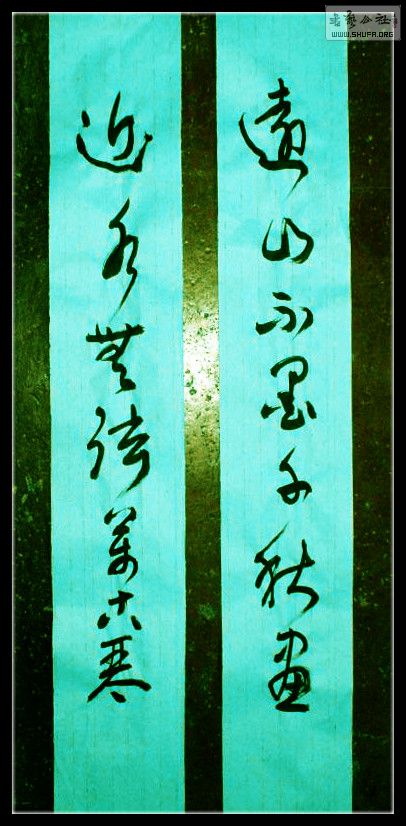 書藝公社
WWW.SHUFA.ORG
遠山不墨千秋畫
近水無絃萬古琴